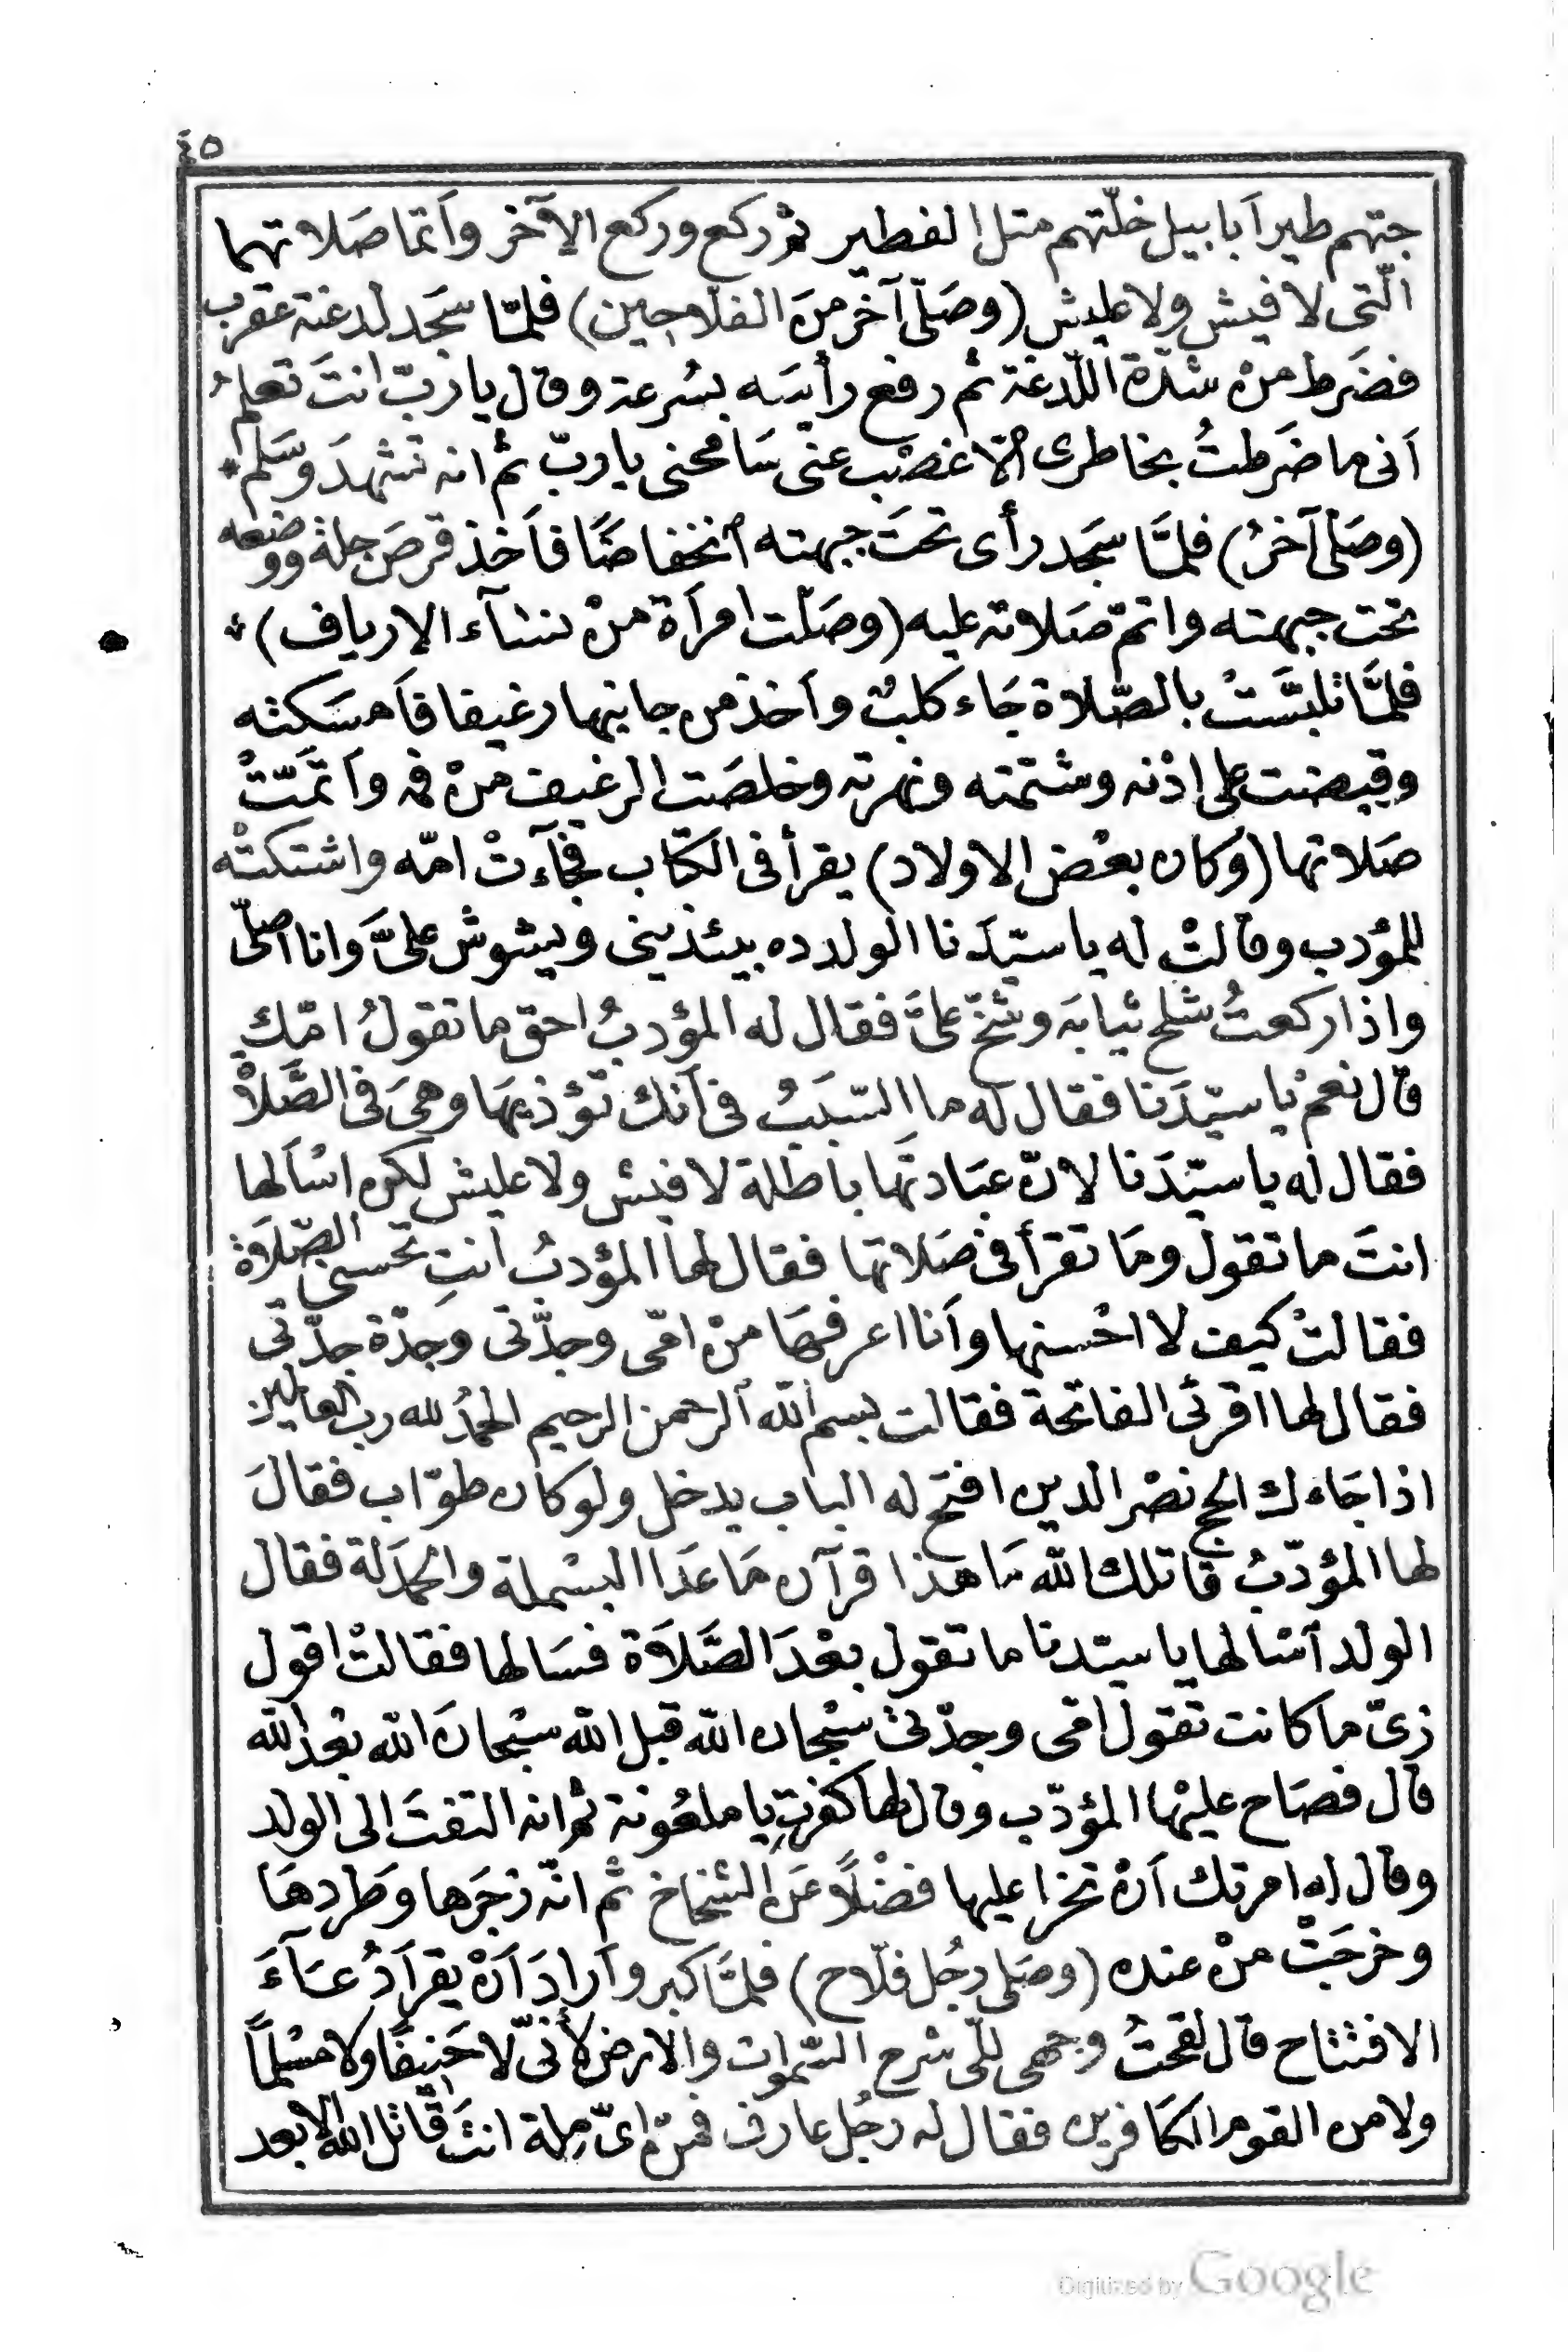 ٤٥
جتهم طيراَ بابيل خلّتهم متل الفطير ثم ركع وركع الآخر وأتمّا صَلاتهما
الّتى لا فيش ولا عليش (وصَلّى آخر منَ الفلاحين) فلمّا سَجَد لدغته عقرب
فضَرط منْ شدّة اللّدغة ثم رفع رأيسَه بسُرعة وقال يا ربّ انتَ تعلمُ
اَنى ما ضَرطتُ بخاطرى الّا غصْب عنّى سَامحنى يا ربّ ثم انه تشهدَ وسَلم *
(وصَلّى آخرُ) فلمَّا سَجَد رأى تحتَ جبهته اٌنخفاضًا فاَخذ قرصَ جلة ووضعه
تحت جبهته واتمّ صَلاته عليه (وصَلّت امرآة منْ نسَآء الارياف) *
فلمَّا تلبَّسَتْ بالصّلاة جَاء كلبٌ واَخذ من جانبها رغيفا فاَمسَكته
وقبضت على اذنه وشتمته ونهرته وخلصَت الرغيف منْ فمه واَتمّتْ
صَلاتها (وَكان بعْض الاولاد) يقرأ فى الكتّاب فجآءتْ امّه واشتكتْه
للمؤدب وقالتْ له يا سيّدَنا الولد ده بيئذينى ويشوش علىَّ وَانا اصلّى
واذا ركعتُ شلح ثيابَه وشخّ علىَّ فقال له المؤدبُ احق ما تقولُ امّك
قال نعمْ يا سيّدَنا فقال له ما السّبَبُ فى اَنك تؤذيهَا وهىَ فى الصَّلاةْ
فقال له يا سيّدَنا لانّ عبَادتَها باطلة لا فيش ولا عليش لكن اسْاَلها
انتَ ما تقول ومَا تقرأ فى صَلاتها فقال لها المؤدبُ انتِ تحسنى الصّلاة
فقالتْ كيف لا احْسنها واَنا اعرفهَا منْ امّى وجدّتى وجدّة جدّتى
فقال لها اقرئى الفاتحة فقالت بسم الله الرحمن الرحيم الحمدُ لله رب العالمين
اذا جَاءك الحج نصْر الدين افتح له الباب يدخل ولو كان طوّاب فقالَ
لها المؤدّبُ قاتلك الله مَا هذا قرآن مَا عدَا البسْملة والحمدَلة فقال
الولد آسْالها يا سيّدنا ما تقول بعْدَ الصَّلاَة فسَالها فقالتْ اقول
زىّ ما كانت تقول امّى وجدّتى سبْحان الله قبل الله سبْحانَ الله بعْد الله
قال فصَاح عليْها المؤدّب وقال لها كفرتِ يا ملعُونة ثم انه التفتَ الى الولد
وقال له امرتك اَنْ تخرا عليها فضْلاً عَن الشخاخ ثم انّه زجَرها وطَردهَا
وخرجَتْ منْ عنده (وصَلى رجُل فلّاح) فلمّا كبر واَرادَ اَنْ يقرآ دُعَآءَ
الافتتاح قال لقحتُ وجهى للّى شرح السّموات والارض لأنّى لا حَنيفًا ولا مسْلماً
ولا من القوم الكافرين فقال له رجُل عارف فمنْ اىّ مِلة انتَ قاتل الله الابعد
Digitized by Google